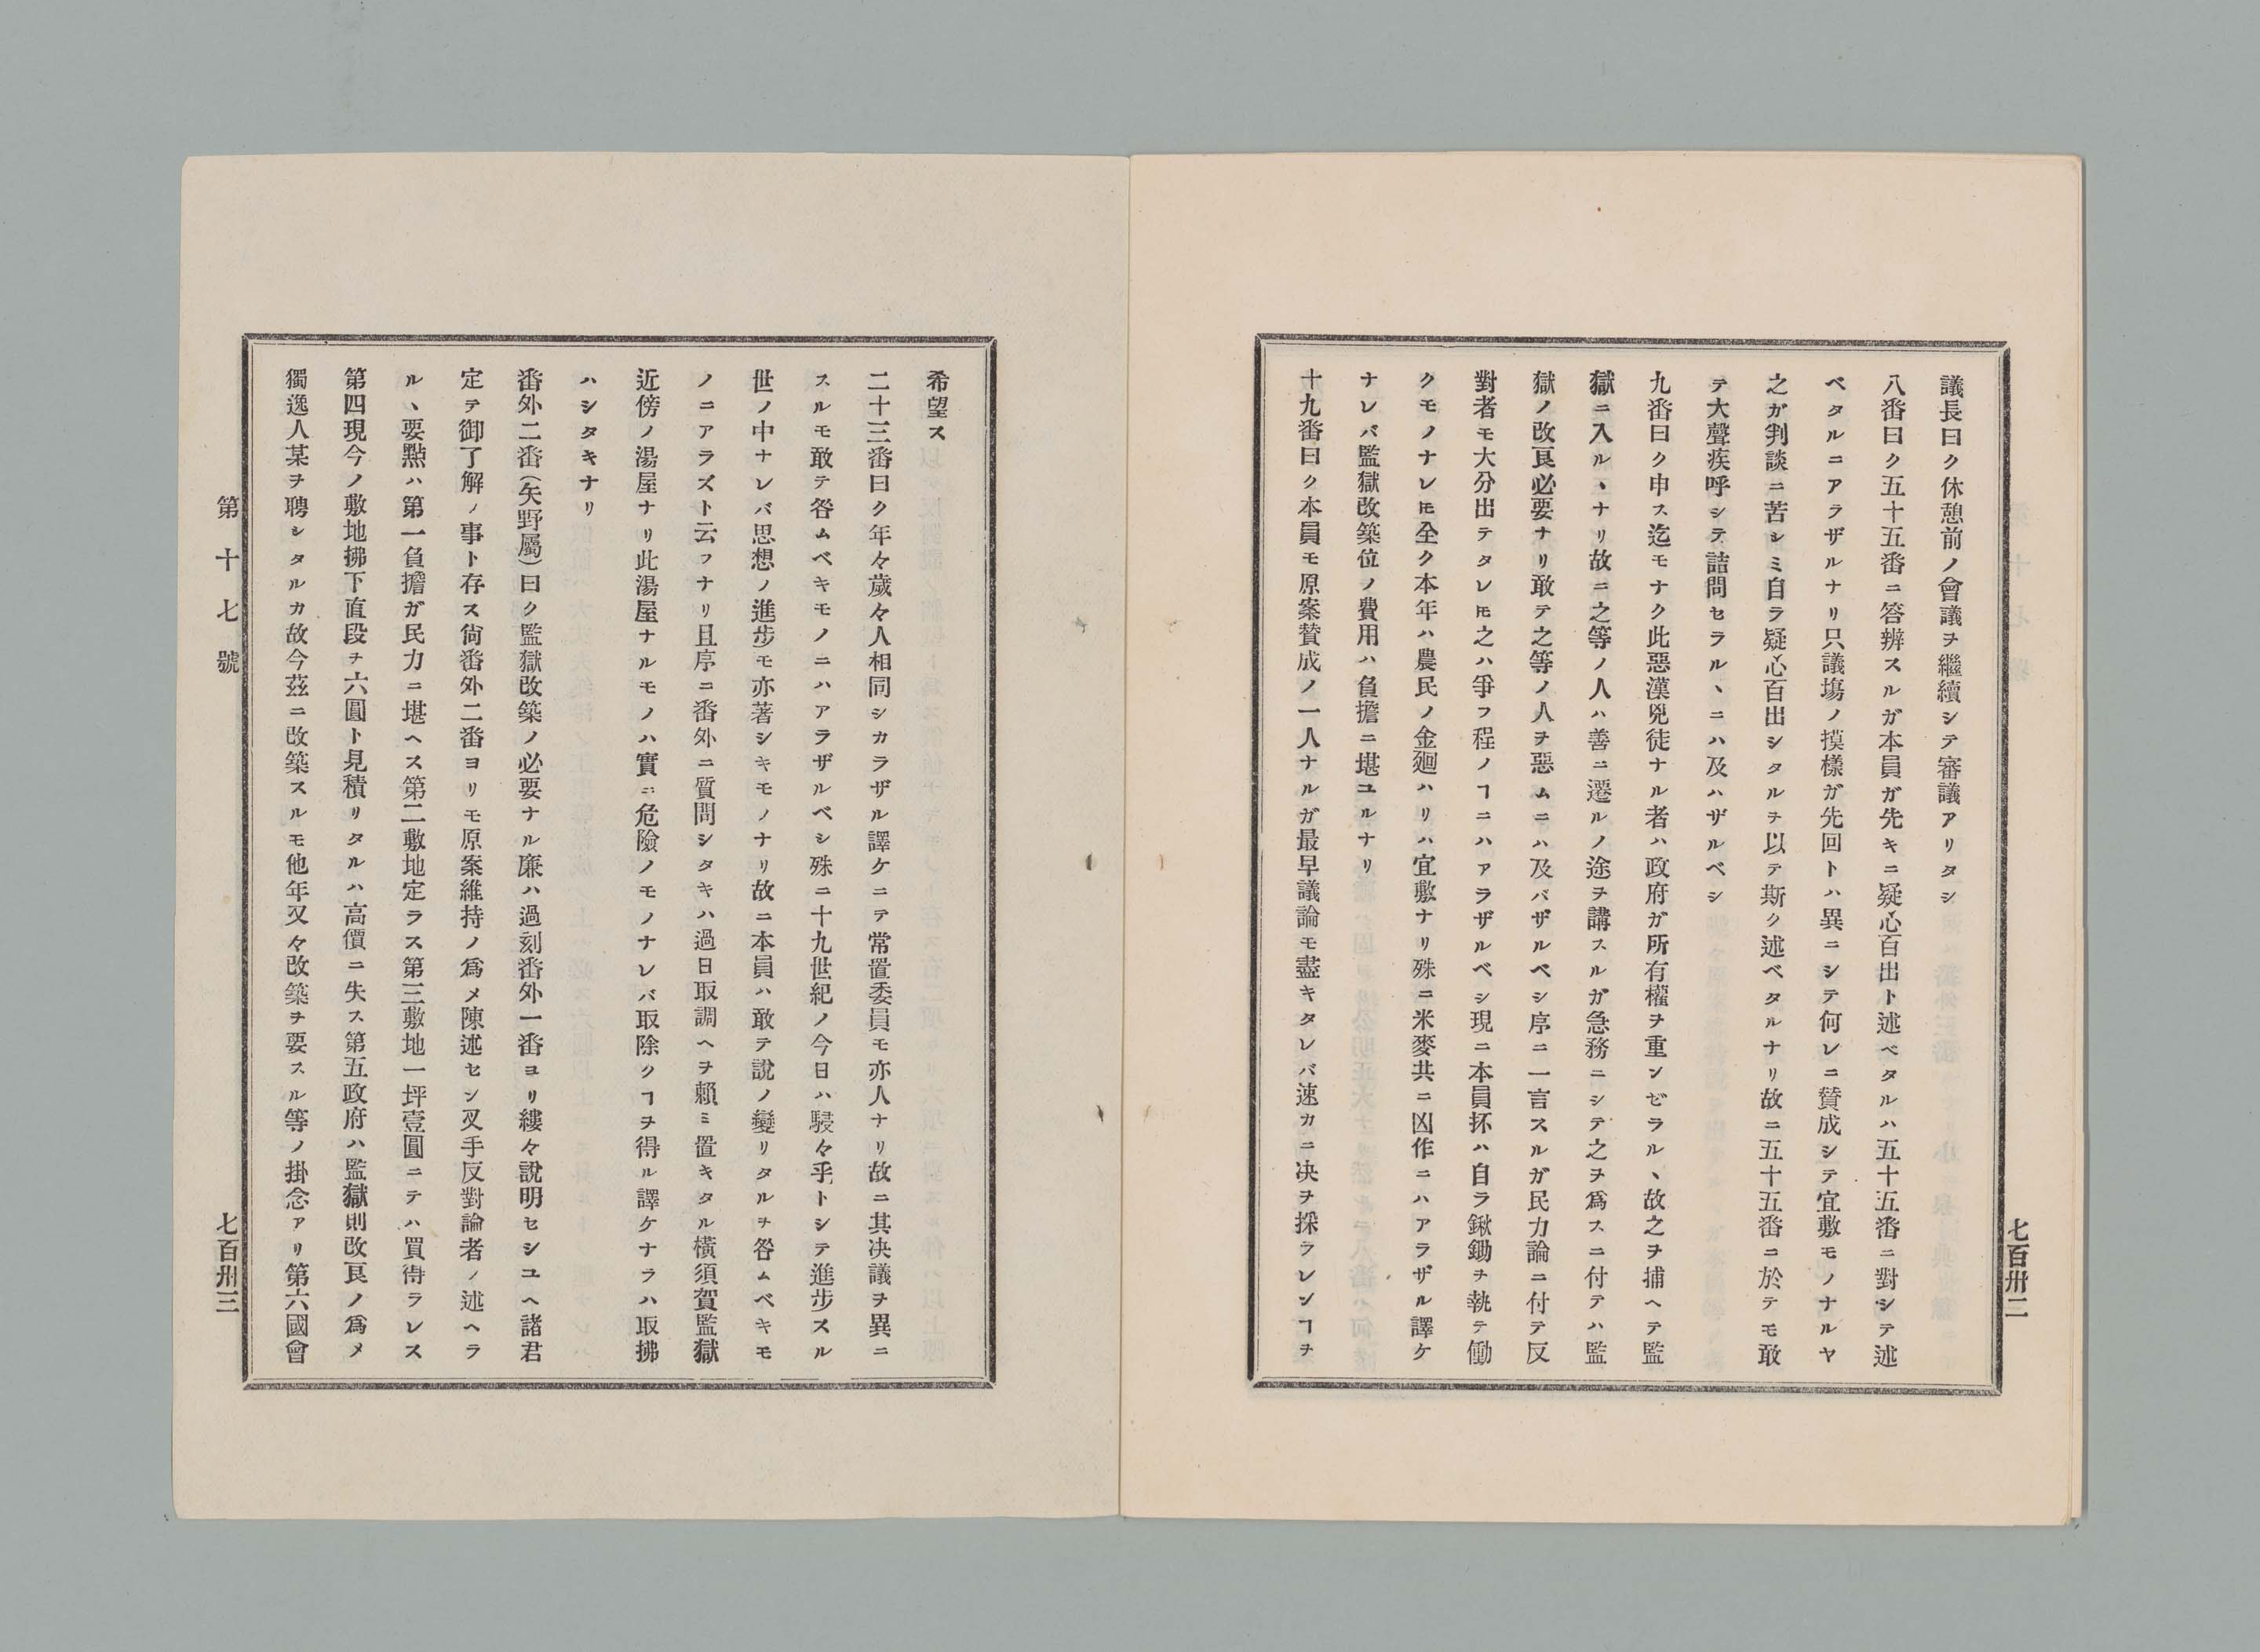 議長曰ク休憩前ノ會議ヲ繼續シテ審議アリタシ
八番曰ク五十五番ニ答辨スルガ本員ガ先キニ疑心百出ト述ベタルハ五十五番ニ對シテ述
ベタルニアラザルナリ只議塲ノ摸樣ガ先回トハ異ニシテ何レニ賛成シテ宜敷モノナルヤ
之ガ判談ニ苦シミ自ラ疑心百出シタルヲ以テ斯ク述ベタルナリ故ニ五十五番ニ於テモ敢
テ大聲疾呼シテ詰問セラルヽニハ及ハザルベシ
九番曰ク申ス迄モナク此惡漢兇徒ナル者ハ政府ガ所有權ヲ重ンゼラルヽ故之ヲ捕ヘテ監
獄ニ入ルヽナリ故ニ之等ノ人ハ善ニ遷ルノ途ヲ講スルガ急務ニシテ之ヲ爲スニ付テハ監
獄ノ改良必要ナリ敢テ之等ノ人ヲ惡ムニハ及バザルベシ序ニ一言スルガ民力論ニ付テ反
對者モ大分出テタレ𪜈之ハ爭フ程ノヿニハアラザルベシ現ニ本員抔ハ自ラ鍬鋤ヲ執テ働
クモノナレ𪜈全ク本年ハ農民ノ金廻ハリハ宜敷ナリ殊ニ米麥共ニ凶作ニハアラザル譯ケ
ナレバ監獄改築位ノ費用ハ負擔ニ堪ユルナリ
十九番曰ク本員モ原案賛成ノ一人ナルガ最早議論モ盡キタレバ速カニ决ヲ採ランヿヲ
七百卅二
希望ス
二十三番曰ク年々歲々人相同シカラザル譯ケニテ常置委員モ亦人ナリ故ニ其决議ヲ異ニ
スルモ敢テ咎ムベキモノニハアラザルベシ殊ニ十九世紀ノ今日ハ駸々乎トシテ進步スル
世ノ中ナレバ思想ノ進步モ亦著シキモノナリ故ニ本員ハ敢テ說ノ變リタルヲ咎ムベキモ
ノニアラズト云フナリ且序ニ番外ニ質問シタキハ過日取調ヘヲ賴ミ置キタル橫須賀監獄
近傍ノ湯屋ナリ此湯屋ナルモノハ實ニ危險ノモノナレバ取除クヿヲ得ル譯ケナラハ取拂
ハシタキナリ
番外二番(矢野屬)曰ク監獄改築ノ必要ナル廉ハ過刻番外一番ヨリ縷々說明セシユヘ諸君
定テ御了解ノ事ト存ス尙番外二番ヨリモ原案維持ノ爲メ陳述セン叉手反對論者ノ述ヘラ
ルヽ要㸃ハ第一負擔ガ民力ニ堪ヘス第二敷地定ラス第三敷地一坪壹圓ニテハ買得ラレス
第四現今ノ敷地拂下直段ヲ六圓ト見積リタルハ高價ニ失ス第五政府ハ監獄則改良ノ爲メ
獨逸人某ヲ聘シタルカ故今茲ニ改築スルモ他年又々改築ヲ要スル等ノ掛念アリ第六國會
第十七號
七百卅三